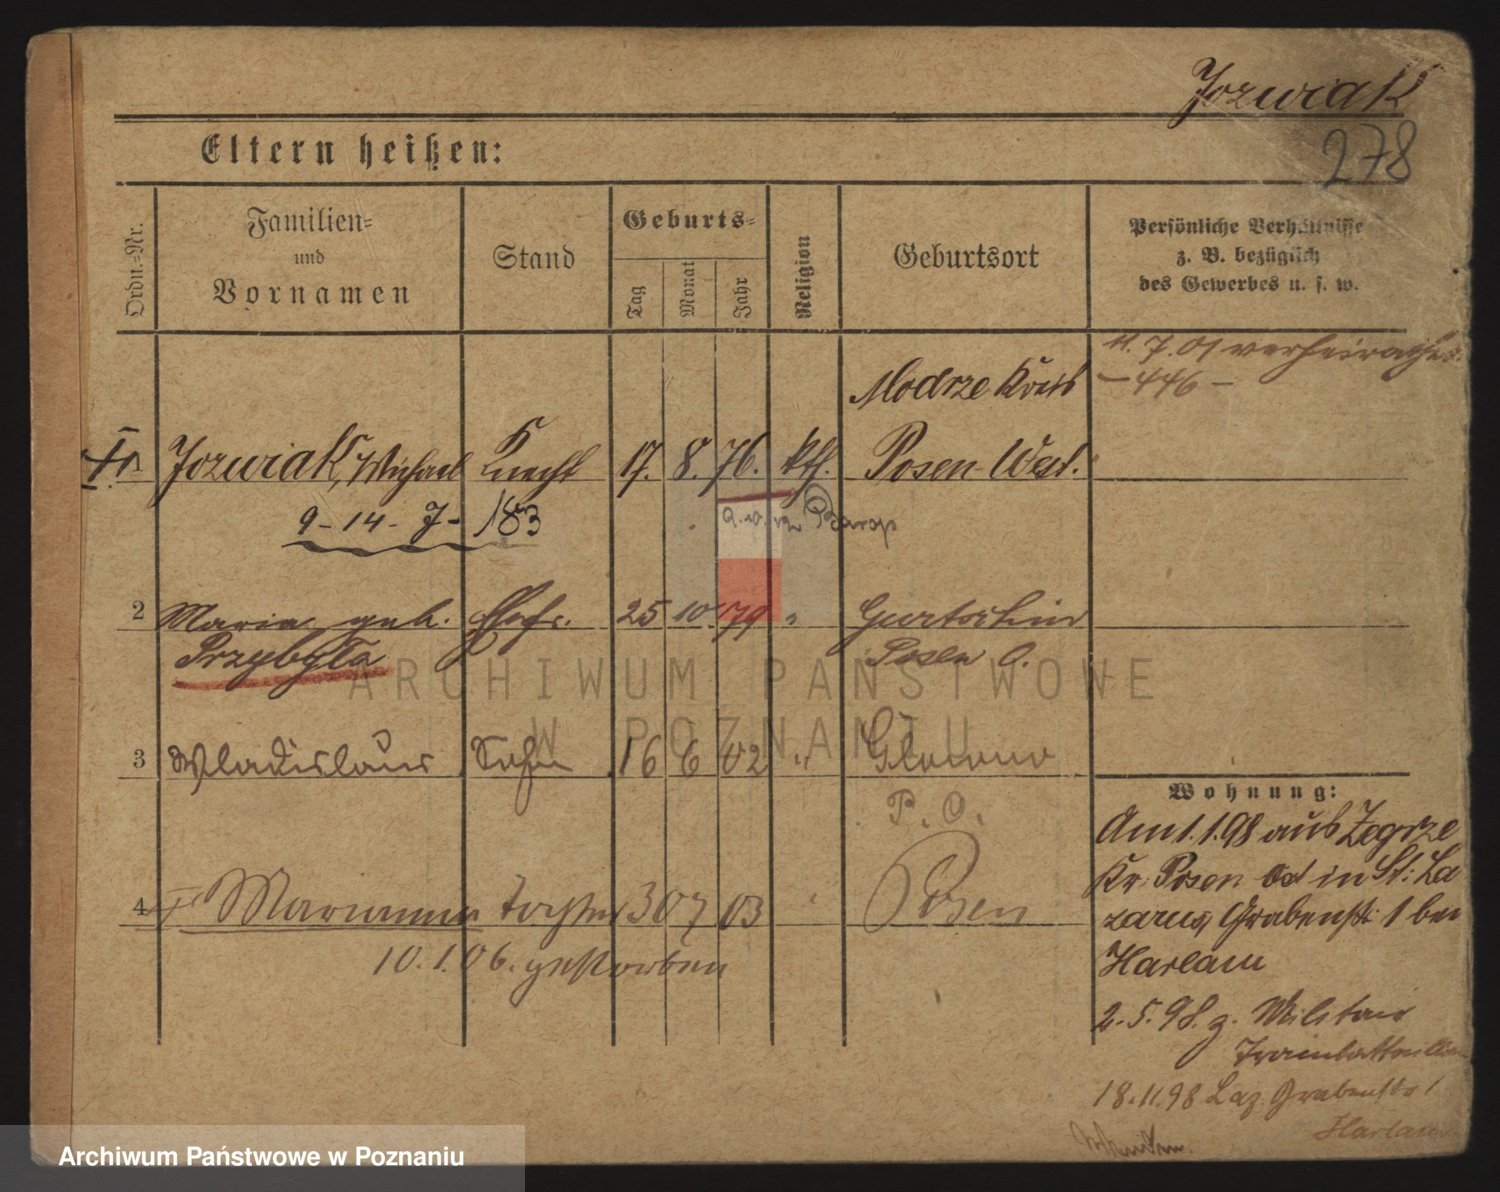 Jozwiak
278
Eltern heißen:
Ordn.-Nr.
Familien- und Vornamen
Stand
Geburts-
Tag
Monat
Jahr
Religion
Geburtsort
Persönliche Verhältnisse
z. B. bezüglich
des Gewerbes u. s. w.
11. 7. 01 verheirathet
– 446 –
Modrze Kreis
Jozwiak, Michael Knecht 17. 8. 76. kth. Posen West.
9 - 14 - 7 - 183
2 Maria geb. Ehefr. 25 10 79 " Gurtschin
Przybyla Posen O.
ARCHIWUM PAŃSTWOWE
W POZNANIU
3 Wladislaus Sohn 16 6 02 " Glowno
P. O.
4 Marianna Tochter 30 7 03 " Posen
10. 1. 06. gestorben
Wohnung:
Am 1. 1. 98 aus Zegrze
Kr. Posen Ost in St: La
zarus, Grabenstr 1 bei
Harlam
2. 5. 98. z. Militair
18. 11. 98 Laz. Grabenstr 1
Harlam
Archiwum Państwowe w Poznaniu